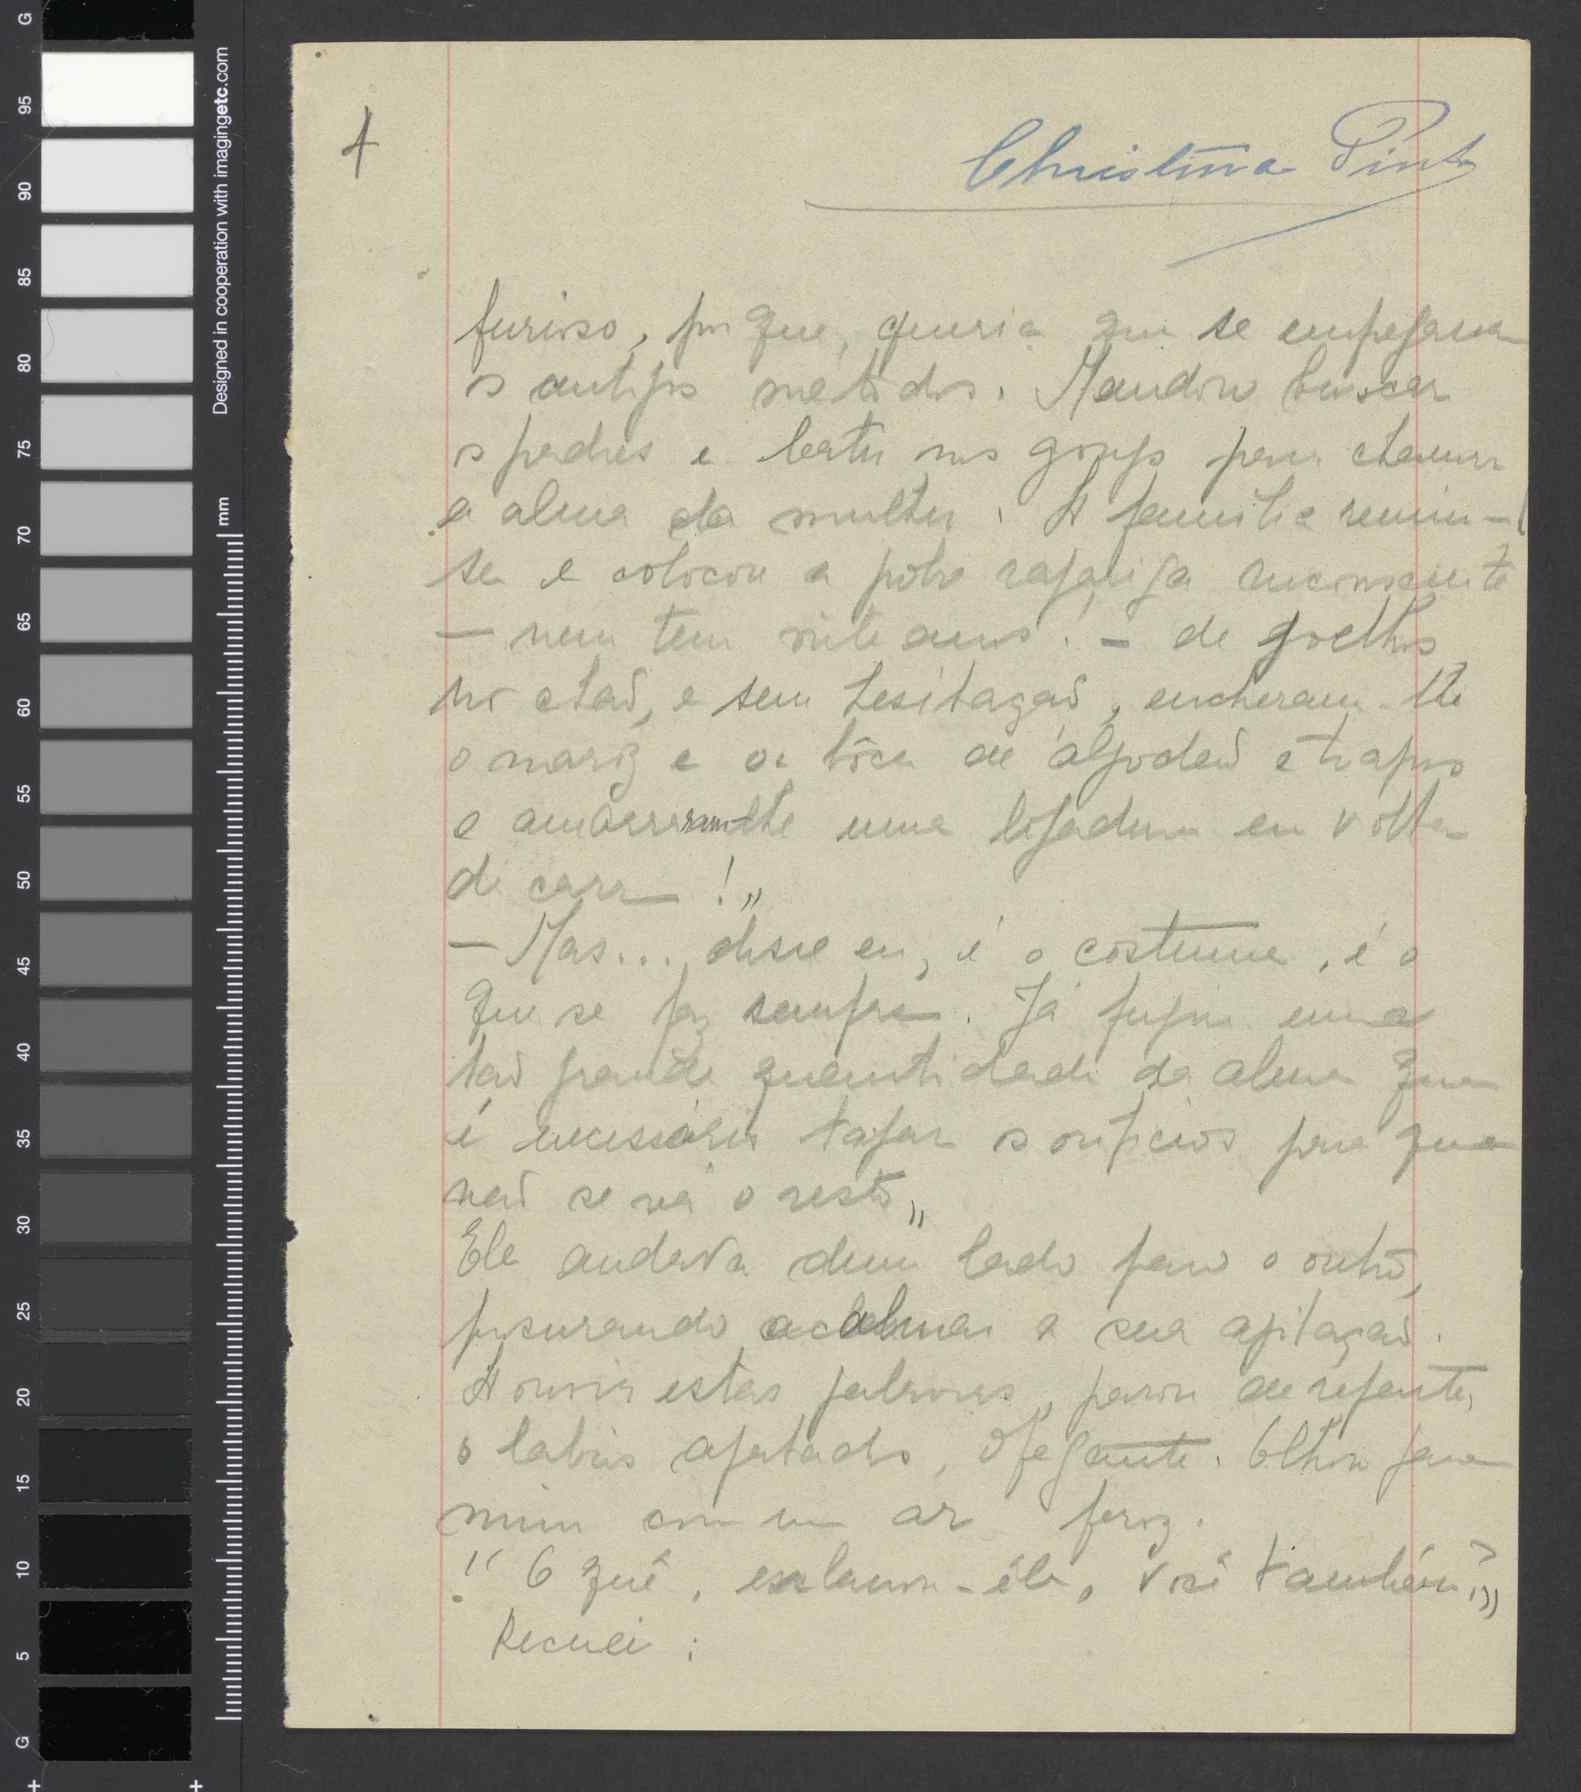 G
95
90
85
80
75
70
65
60
55
50
45
40
35
30
25
20
15
10
5
G
Designed in cooperation with imagingetc.com
mm
4
Christina Pinto
furioso, por que, queria que se empregassem
os antigos metodos. Mandou buscar
os padres e bater nos gongs para chamar
a alma da mulher. A familia reuniu-
se e colocou a pobre rapariga inconsciente
— nem tem vinte anos! — de joelhos
no chaõ, e sem hesitaçaõ, encheram-lhe
o nariz e a bôca de algodaõ e trapos
e amarraram-lhe uma ligadura em volta
da cara!„
— Mas... disse eu, é o costume, é o
que se faz sempre. Já fugiu uma
taõ grande quantidade da alma que
é necessário tapar os orificios para que
naõ se vá o resto„
Ele andava dum lado para o outro,
procurando acalmar a sua agitaçaõ.
A ouvir estas palavras, parou de repente,
os labios apertados, ofegante. Olhou para
mim com um ar feroz.
!" O quê, exclamou-êle, você tambêm?„
Recuei: